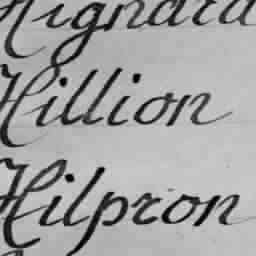 Hignard
Hillion
Hilpron